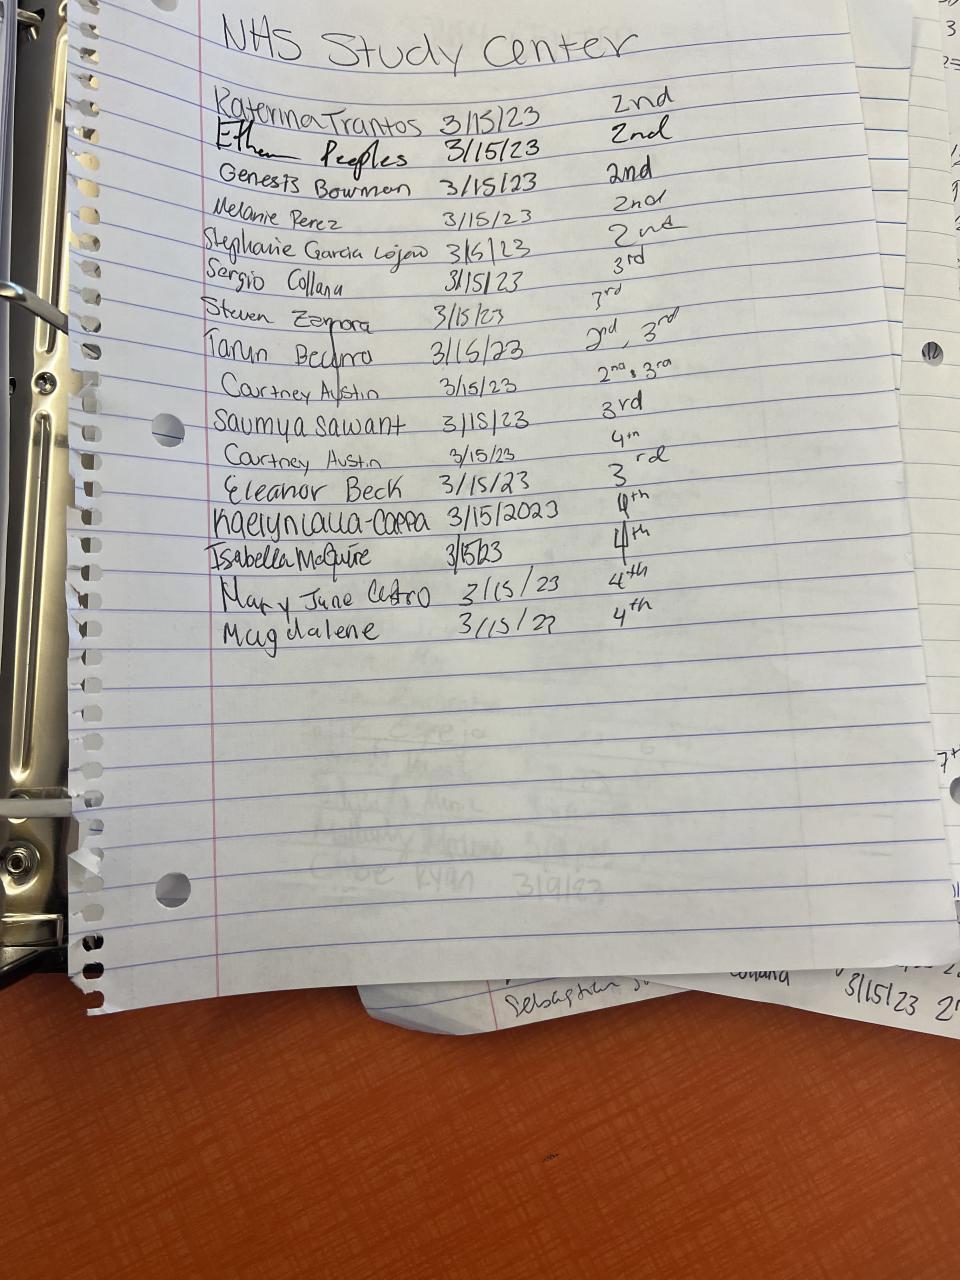 NHS Study Center
Katerina Trantos 3/15/23 2nd
Ethan Peeples 3/15/23 2nd
Genesis Bowman 3/15/23 2nd
Melanie Perez 3/15/23 2nd
Stephanie Garcia 3/15/23 2nd
Sergio Collana 3/15/23 3rd
Steven Zamora 3/15/23 3rd
Tarun 3/15/23 2nd, 3rd
Courtney Austin 3/15/23 2nd, 3rd
Saumya Sawant 3/15/23 3rd
Courtney Austin 3/15/23 4th
Eleanor Beck 3/15/23 3rd
Kaelyn 3/15/2023 4th
Isabella McGuire 3/15/23 4th
Mary June Castro 3/15/23 4th
Magdalene 3/15/23 4th
Chloe Ryan 3/9/23
Sebastian
3/15/23